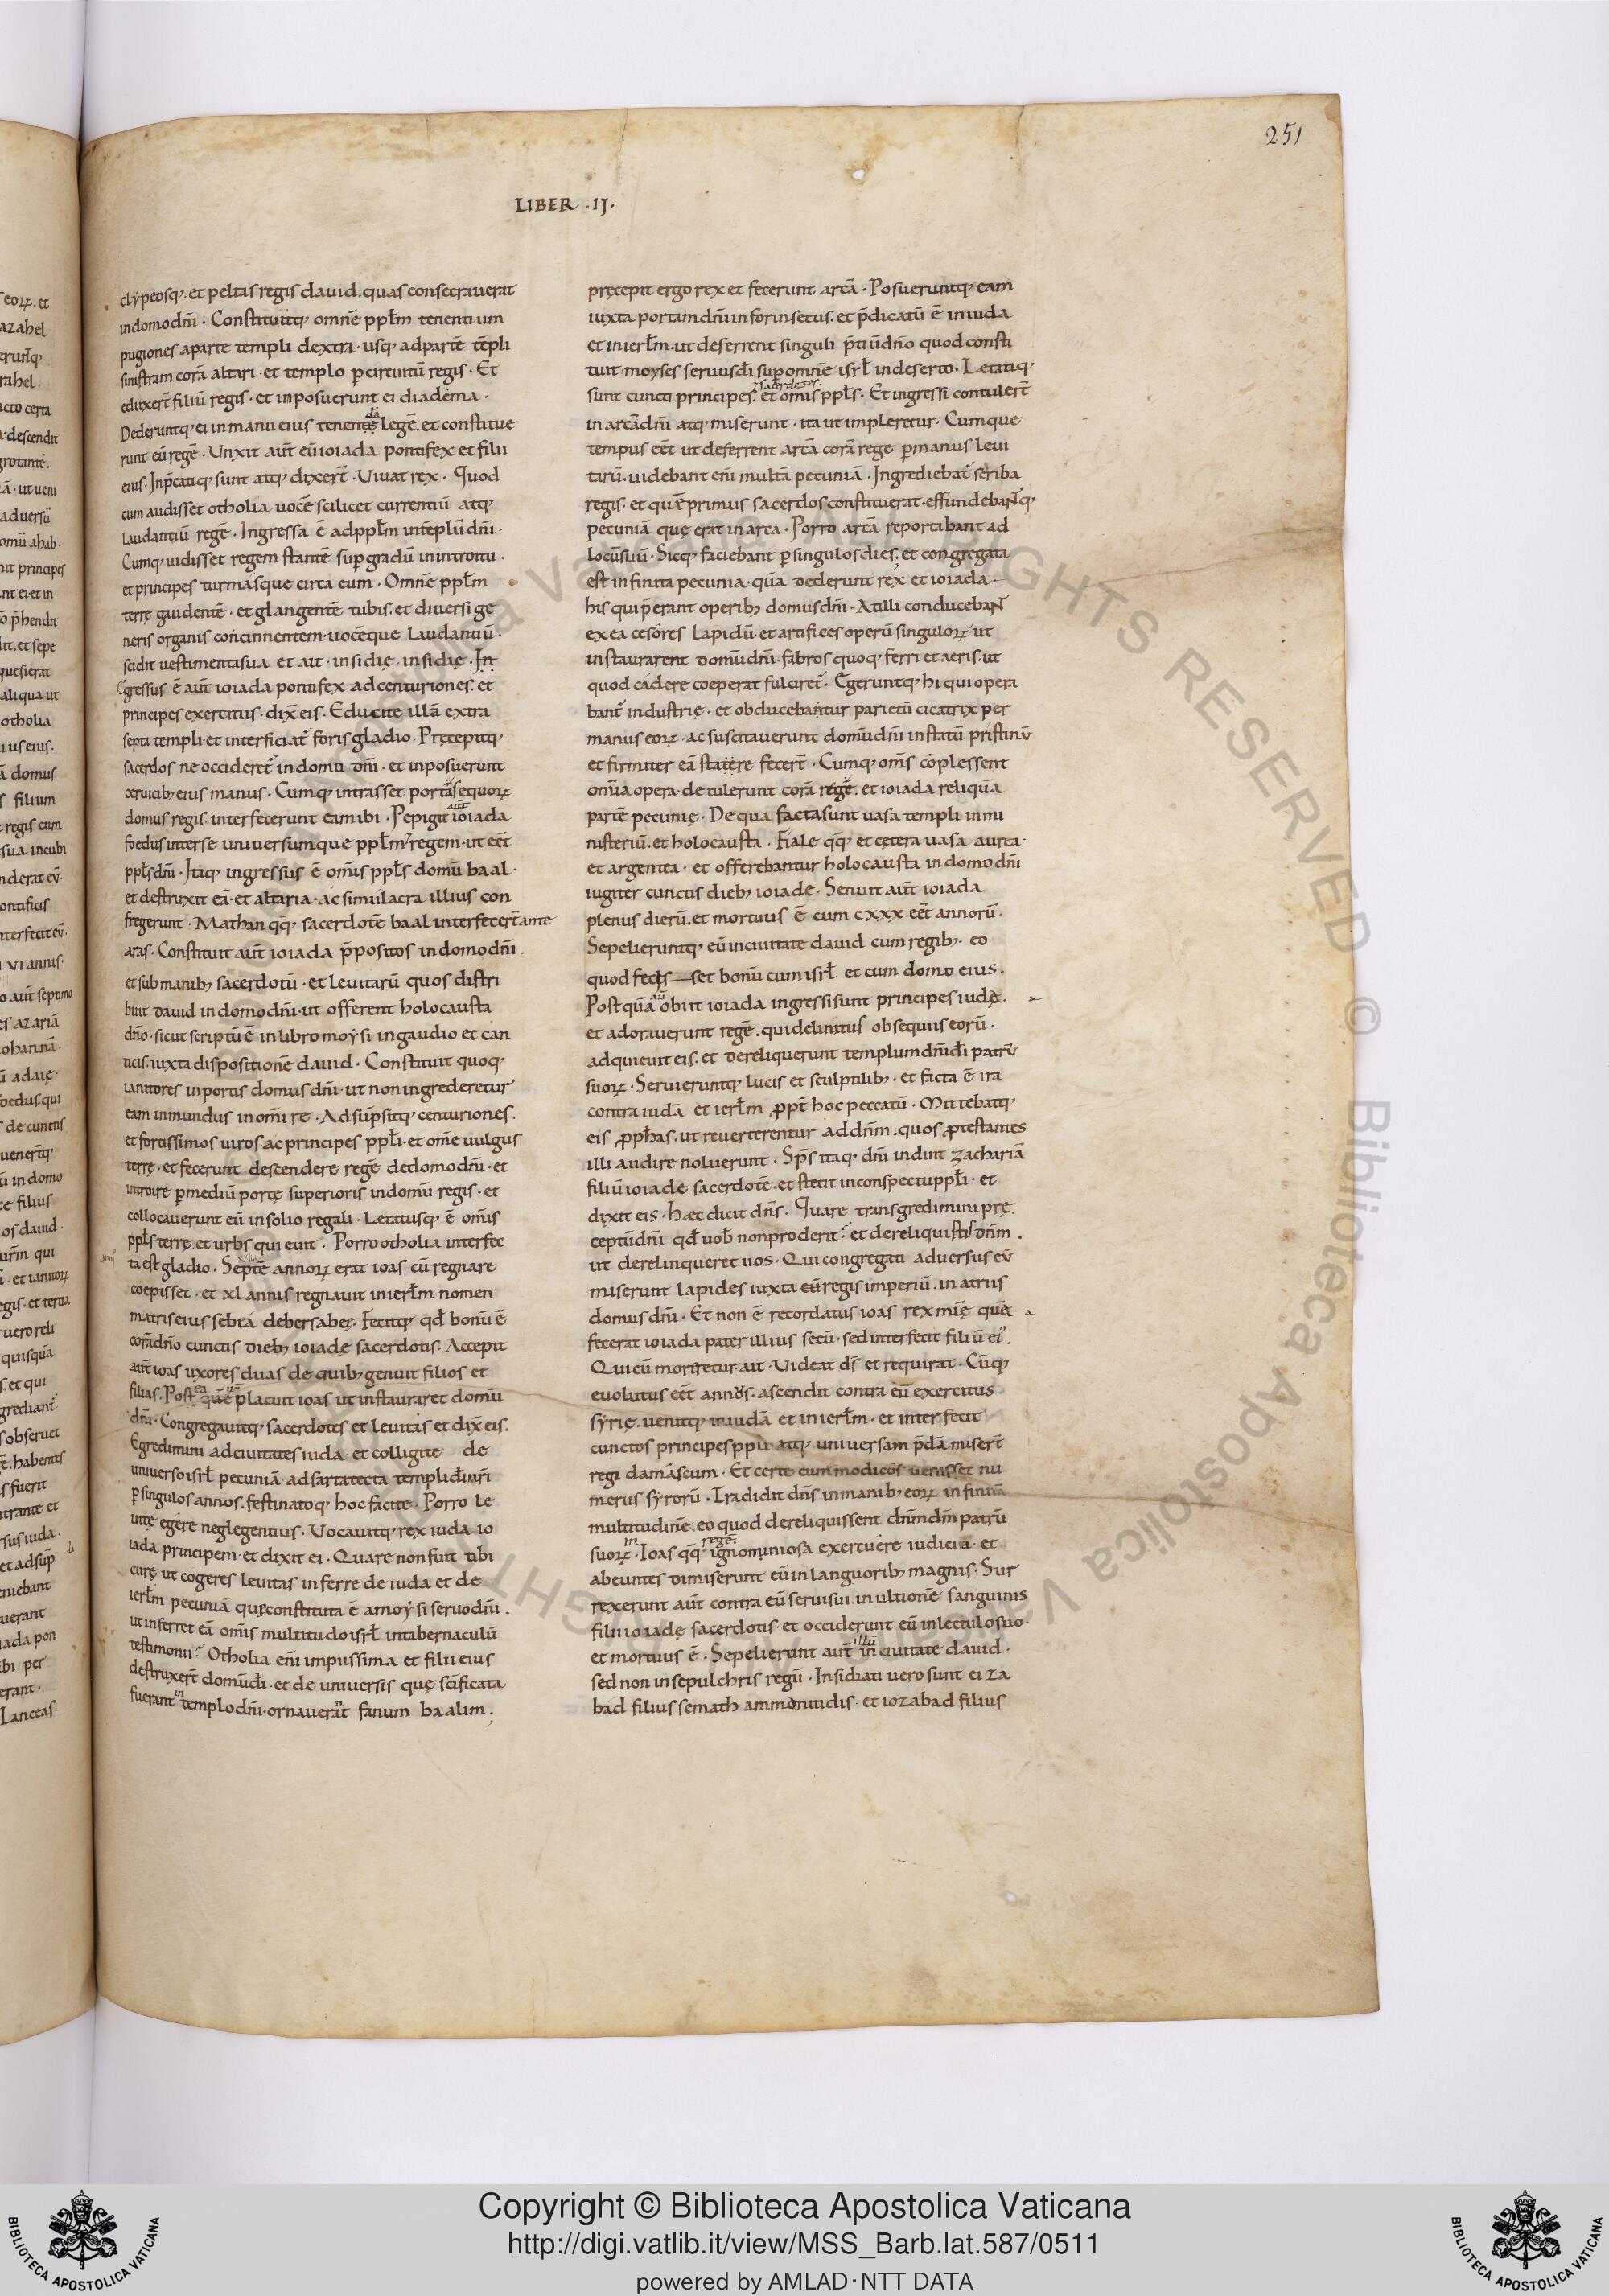 251
LIBER · IJ ·
clypeosq;. et peltas regis dauid. quas consecrauerat
in domo dn̄i · Constituitq; omnē ppl̄m tenentium
pugiones a parte templi dextra · usq; ad partē tēpli
sinistram corā altari · et templo p circuitū regis · Et
eduxer̄t filiū regis · et inposuerunt ei diadema ·
Dederuntq; ei in manu eius tenendā legē. et constitue
runt eū regē · Unxit aut̄ eū ioiada pontifex et filii
eius · Inp̄catiq; sunt atq; dixer̄t · Uiuat rex · Quod
cum audisset otholia uocē scilicet currentiū atq;
laudantiū regē · Ingressa ē ad ppl̄m in tēplū dn̄i ·
Cumq; uidisset regem stantē sup gradū in introitu ·
et principes turmasque circa eum · Omnē ppl̄m
terrę gaudentē · et glangentē tubis. et diuersi ge
neris organis concinnentem · uocēque laudantiū ·
scidit uestimenta sua et ait · insidię · insidię · In
Egressus ē aut̄ ioiada pontifex ad centuriones. et
principes exercitus · dix̄ eis · Educite illā extra
septa templi · et interficiat̄ foris gladio · Pręcepitq;
sacerdos ne occideret̄ in domu dn̄i · et inposuerunt
ceruicib; eius manus · Cumq; intrasset portā equorꝝ
domus regis. interfecerunt eam ibi · Pepigit aut̄ ioiada
foedus inter se uniuersumque ppl̄m regem · ut eēt
ppl̄s dn̄i · Itaq; ingressus ē om̄is ppl̄s domū baal ·
et destruxit eā · et altaria · ac simulacra illius con
fregerunt · Mathan qq; sacerdotē baal interfecer̄t ante
aras · Constituit aut̄ ioiada p̄positos in domo dn̄i ·
et sub manib; sacerdotū · et leuitarū quos distri
buit dauid in domo dn̄i · ut offerent holocausta
dn̄o · sicut scriptū ē in libro moysi in gaudio et can
ticis · iuxta dispositionē dauid · Constituit quoq;
ianitores in portis domus dn̄i · ut non ingrederetur
eam inmundus in om̄i re · Adsūpsitq; centuriones ·
et fortissimos uiros ac principes ppl̄i · et om̄e uulgus
terrę · et fecerunt descendere regē de domo dn̄i · et
introire p mediū portę superioris in domū regis · et
collocauerunt eū in solio regali · Letatusq; ē om̄is
ppl̄s terrę. et urbs quieuit · Porro otholia interfec
ta est gladio · Septē annorꝝ erat ioas cū regnare
coepisset · et xl annis regnauit in ierl̄m nomen
matris eius sebia de bersabeę · Fecitq; qd̄ bonū ē
corā dn̄o cunctis dieb; ioiadę sacerdotis · Accepit
aut̄ ioas uxores duas de quib; genuit filios et
filias. Post quē placuit ioas ut instauraret domū
dn̄i · Congregauitq; sacerdotes et leuitas et dix̄ eis.
Egredimini ad ciuitates iuda · et colligite de
uniuerso isrl̄ pecuniā · ad sartatecta templi dī ur̄i
p singulos annos. festinatoq; hoc facite · Porro le
uitę egere neglegentius · Uocauitq; rex iuda io
iada principem · et dixit ei · Quare non fuit tibi
curę ut cogeres leuitas inferre de iuda et de
ierl̄m pecuniā quę constituta ē a moysi seruo dn̄i ·
ut inferret eā om̄is multitudo isrl̄ in tabernaculū
testimonii · Otholia em̄ impiissima et filii eius
destruxer̄t domū dī · et de uniuersis quę scīficata
fuerant in templo dn̄i · ornauerant fanum baalim ·
pręcepit ergo rex et fecerunt arcā · Posueruntq; eam
iuxta portam dn̄i in forinsecus. et p̄dicatū ē in iuda
et in ierl̄m · ut deferrent singuli p̄tiū dn̄o quod consti
tuit moyses seruus dī sup omnē isrl̄ in deserto · Letatiq;
sunt cuncti principes. et om̄is ppl̄s · Et ingressi contuler̄t
in arcā dn̄i atq; miserunt · ita ut impleretur · Cumque
tempus eēt ut deferrent arcā corā rege p manus leui
tarū · uidebant em̄ multā pecuniā · Ingrediebat̄ scriba
regis · et quē primus sacerdos constituerat · effundebantq;
pecuniā quę erat in arca · Porro arcā reportabant ad
locū suū · Sicq; faciebant p singulos dies. et congregata
est infinita pecunia · quā dederunt rex et ioiada ·
his qui p̄erant operib; domus dn̄i · At illi conducebant
ex ea cesores lapidū · et artifices operū singulorꝝ · ut
instaurarent domū dn̄i · fabros quoq; ferri et aeris · ut
quod cadere coeperat fulciret̄ · Egeruntq; hi qui opera
bant̄ industrię · et obducebantur parietū cicatrix per
manus eorꝝ · ac suscitauerunt domū dn̄i in statū pristinū
et firmiter eā stare fecer̄t · Cumq; om̄s cōplessent
om̄ia opera · detulerunt corā rege. et ioiada reliquā
partē pecunię · De qua facta sunt uasa templi in mi
nisteriū. et holocausta · Fiale qq; et cetera uasa aurea ·
et argentea · et offerebantur holocausta in domo dn̄i
iugiter cunctis dieb; ioiadę · Senuit aut̄ ioiada
plenus dierū. et mortuus ē cum cxxx eēt annorū ·
Sepelieruntq; eū in ciuitate dauid cum regib; · eo
quod fecis—set bonū cum isrl̄ et cum domo eius ·
Postquā aū obiit ioiada ingressi sunt principes iudę ·
et adorauerunt regē. qui delinitus obsequiis eorū ·
adquieuit eis. et dereliquerunt templum dn̄i dī patrū
suorꝝ · Seruieruntq; lucis et sculptilib; · et facta ē ira
contra iudā et ierl̄m ppt̄ hoc peccatū · Mittebatq;
eis pph̄as. ut reuerterentur ad dn̄m. quos ptestantes
illi audire noluerunt · Sp̄s itaq; dn̄i induit zachariā
filiū ioiade sacerdotē · et stetit in conspectu ppl̄i · et
dixit eis · Haec dicit dn̄s · Quare transgredimini pręː
ceptū dn̄i qd̄ uob̄ non proderit · et dereliquistis dn̄m ·
ut derelinqueret uos · Qui congregati aduersus eū
miserunt lapides iuxta eū regis imperiū. in atriis
domus dn̄i · Et non ē recordatus ioas rex mīę quā
fecerat ioiada pater illius secū · sed interfecit filiū ei;.
Qui cū moreretur. ait · Uideat ds̄ et requirat · Cūq;
euolutus eēt annus. ascendit contra eū exercitus
syrię. uenitq; in iudā et in ierl̄m · et interfecit
cunctos principes ppli atq; uniuersam p̄dā miser̄t
regi damascum · Et certe cum modicos uenisset nu
merus syrorū · Tradidit dn̄s in manib; eorꝝ infinitā
multitudinē. eo quod dereliquissent dn̄m dm̄ patrū
suorꝝ · In Ioas qq; regē ignominiosa exercuere iudicia · et
abeuntes dimiserunt eū in languorib; magnis · Sur
rexerunt aut̄ contra eū serui sui. in ultionē sanguinis
filii ioiadę sacerdotis · et occiderunt eū in lectulo suo ·
et mortuus ē · Sepelierunt aut̄ illū in ciuitate dauid ·
sed non in sepulchris regū · Insidiati uero sunt ei za
bad filius semath ammonitidis · et iozabad filius
Copyright © Biblioteca Apostolica Vaticana
http://digi.vatlib.it/view/MSS_Barb.lat.587/0511
powered by AMLAD·NTT DATA
BIBLIOTECA APOSTOLICA VATICANA
BIBLIOTECA APOSTOLICA VATICANA